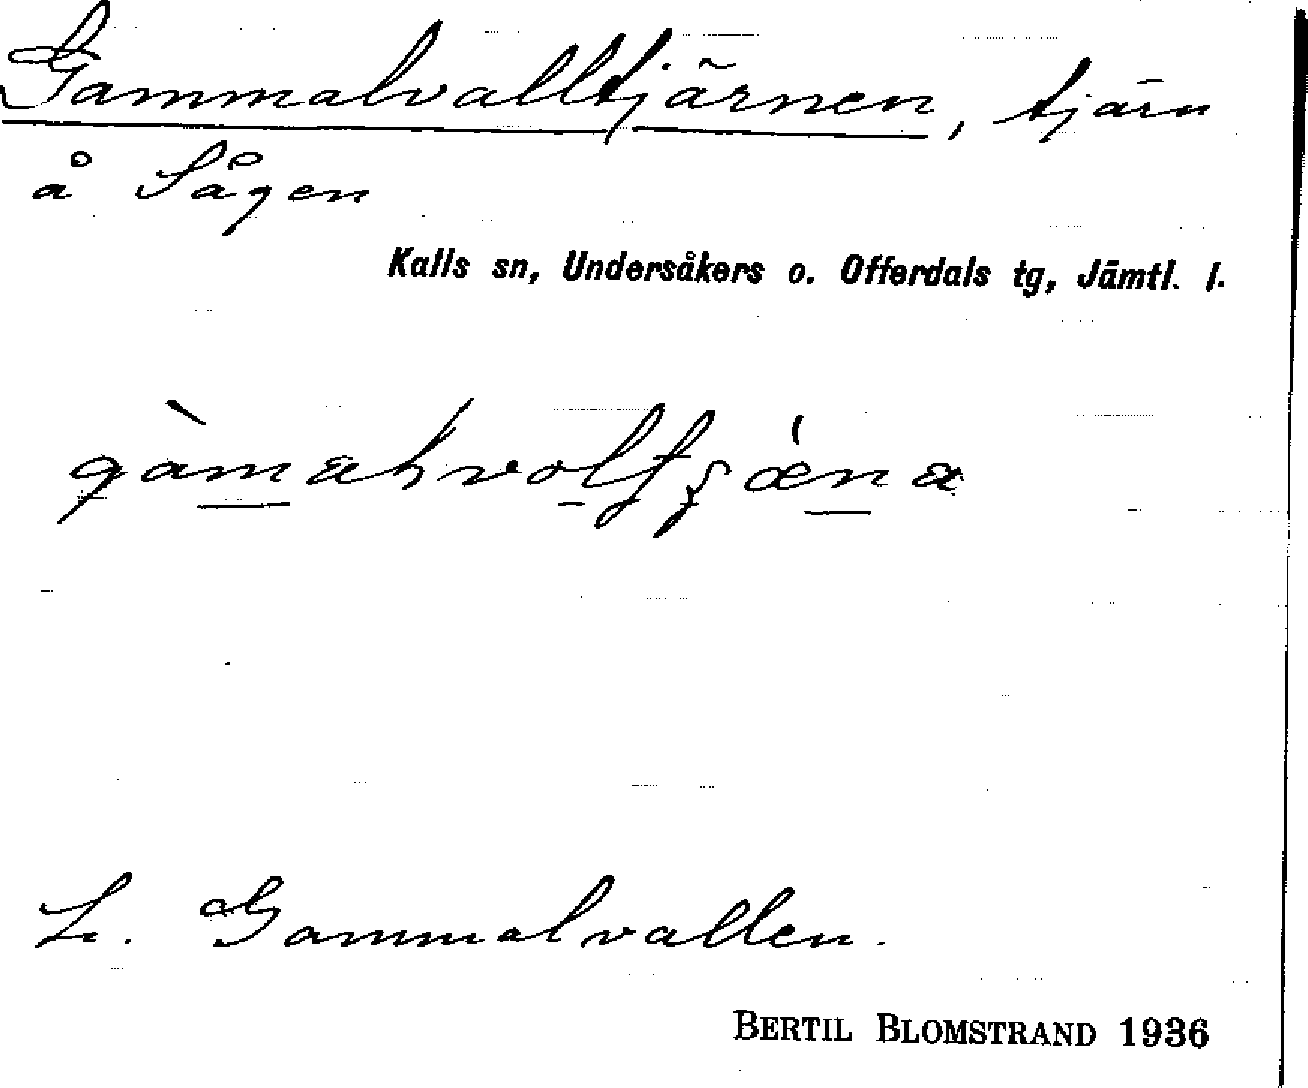 Gammalvalltjärnen, tjärn
å Sågen
Kalls sn, Undersåkers o. Offerdals tg, Jämtl. l.
L. Gammalvallen.
BERTIL BLOMSTRAND 1936